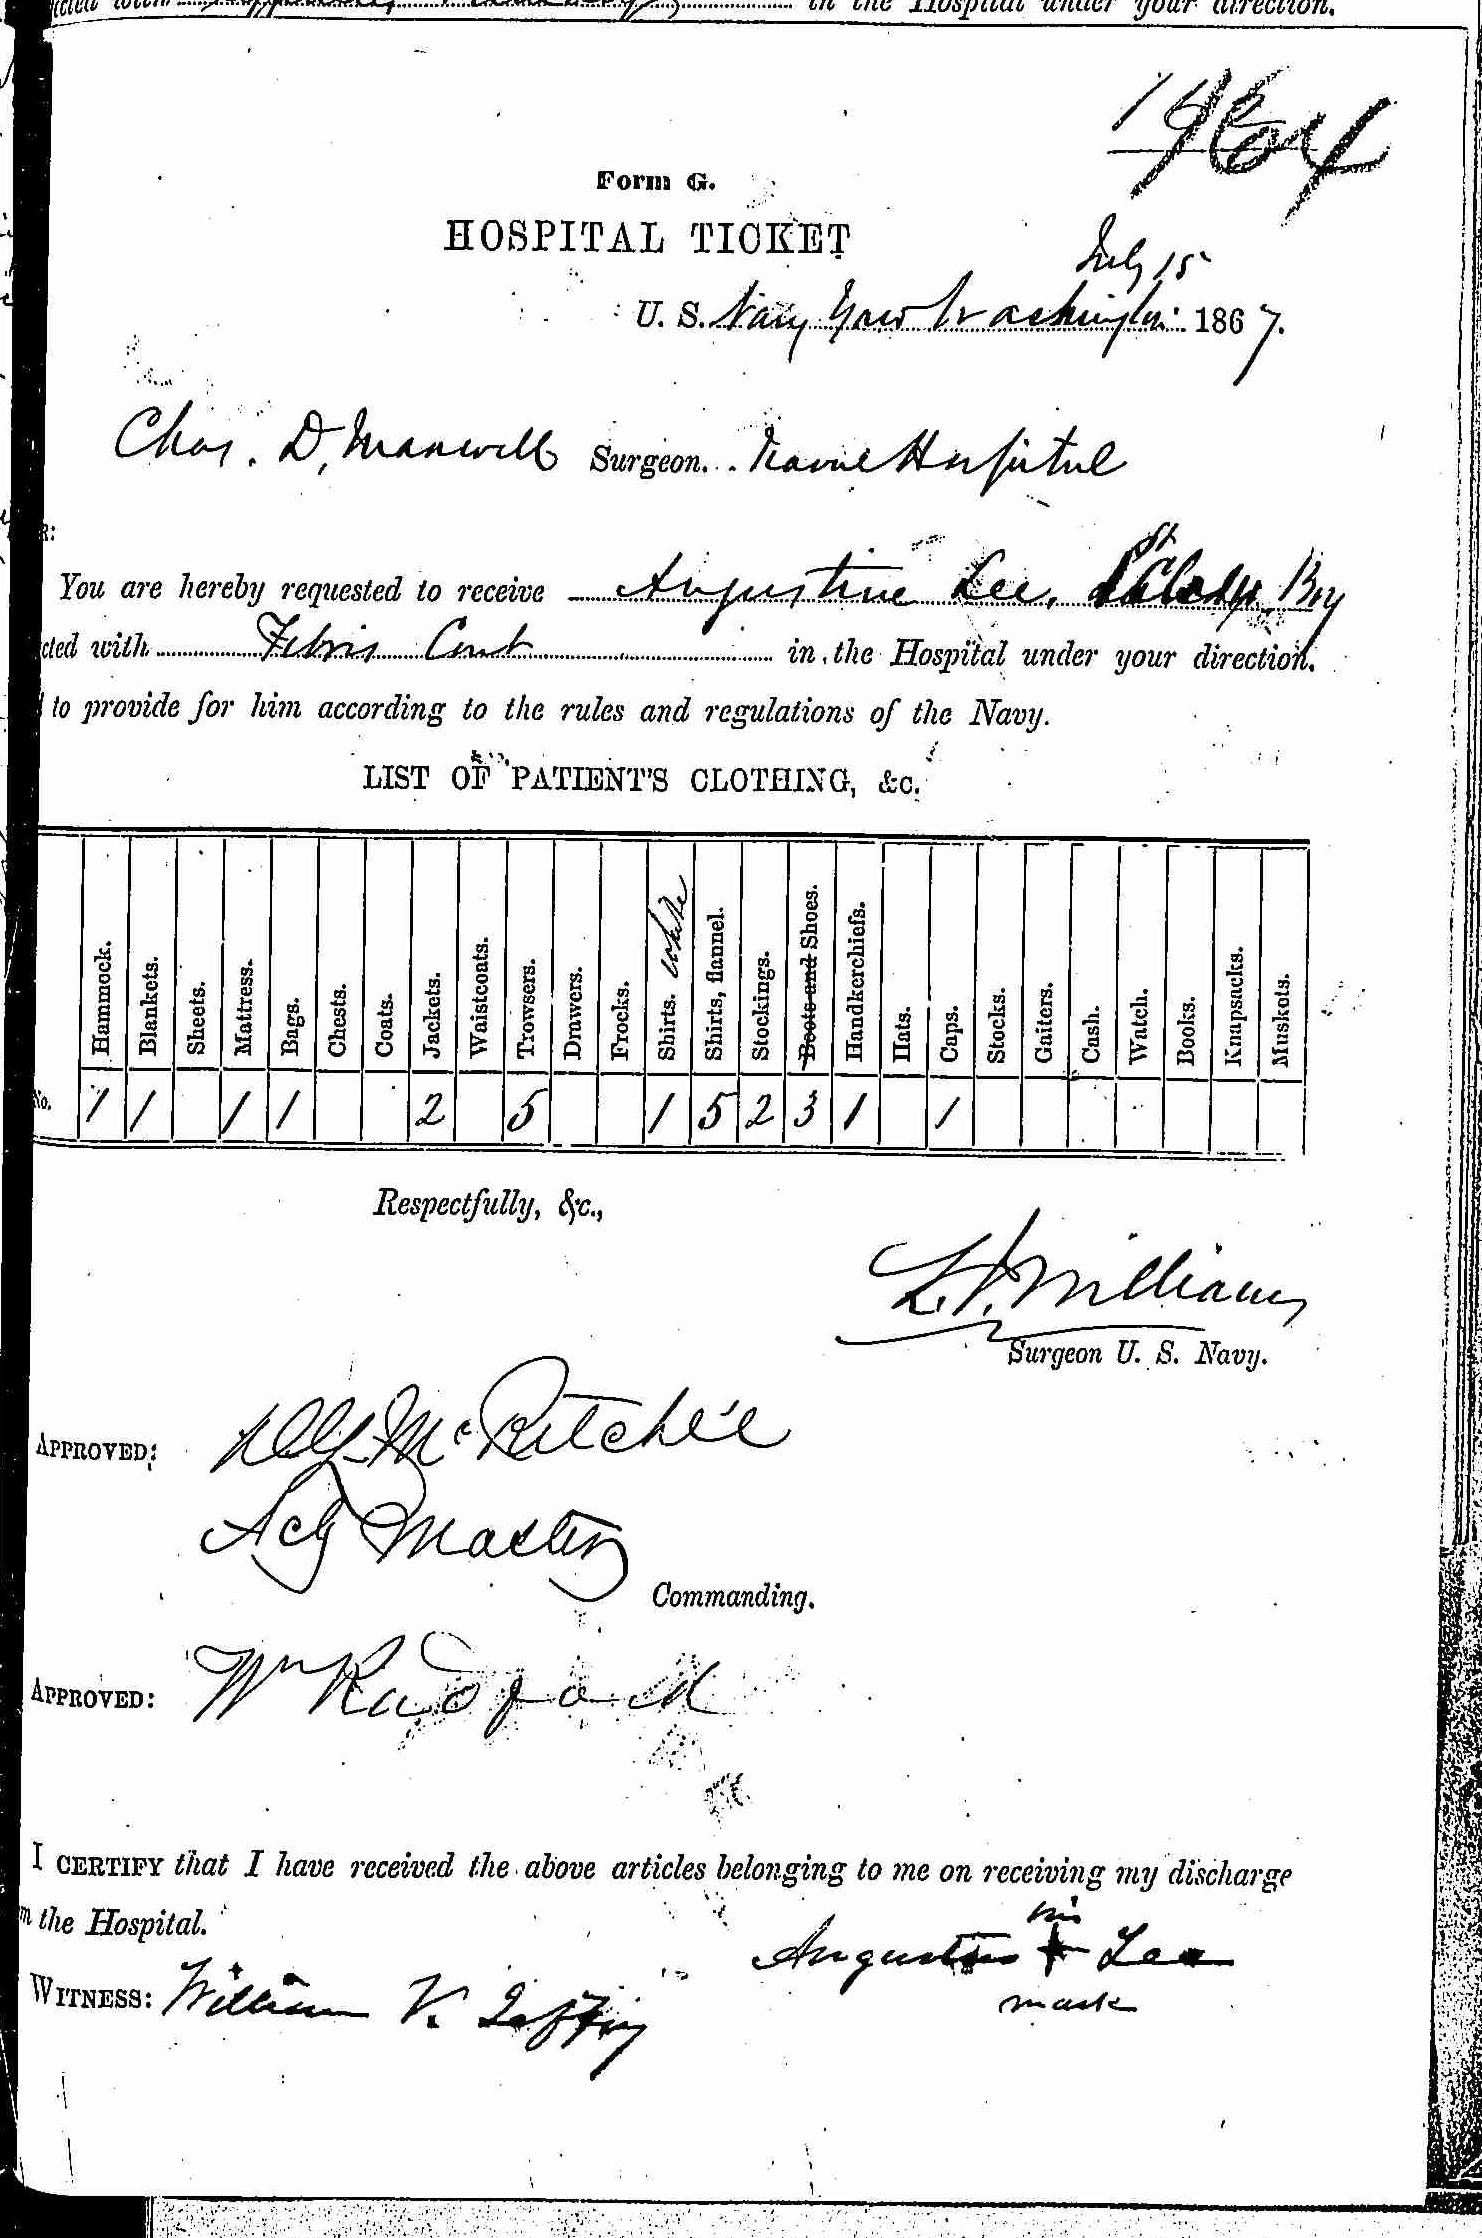 in the Hospital under your direction.
Form G.
HOSPITAL TICKET
July 15
U. S. Navy Yard Washington 1867.
Chas. D. Maxwell Surgeon. Naval Hospital
R:
You are hereby requested to receive Augustine Lee, Boy
cted with Febris Cont in the Hospital under your direction.
to provide for him according to the rules and regulations of the Navy.
LIST OF PATIENT'S CLOTHING, &c.
Hammock. Blankets. Sheets. Mattress. Bags. Chests. Coats. Jackets. Waistcoats. Trowsers. Drawers. Frocks. Shirts. white Shirts, flannel. Stockings. Boots and Shoes. Handkerchiefs. Hats. Caps. Stocks. Gaiters. Cash. Watch. Books. Knapsacks. Muskets.
No. 1 1 1 1 2 5 1 5 2 3 1 1
Respectfully, &c.,
Williams
Surgeon U. S. Navy.
APPROVED: McRitchie
Actg Master
Commanding.
APPROVED: Wm Radford
I CERTIFY that I have received the above articles belonging to me on receiving my discharge
m the Hospital.
his
Augustus + Lee
mark
WITNESS: William V.